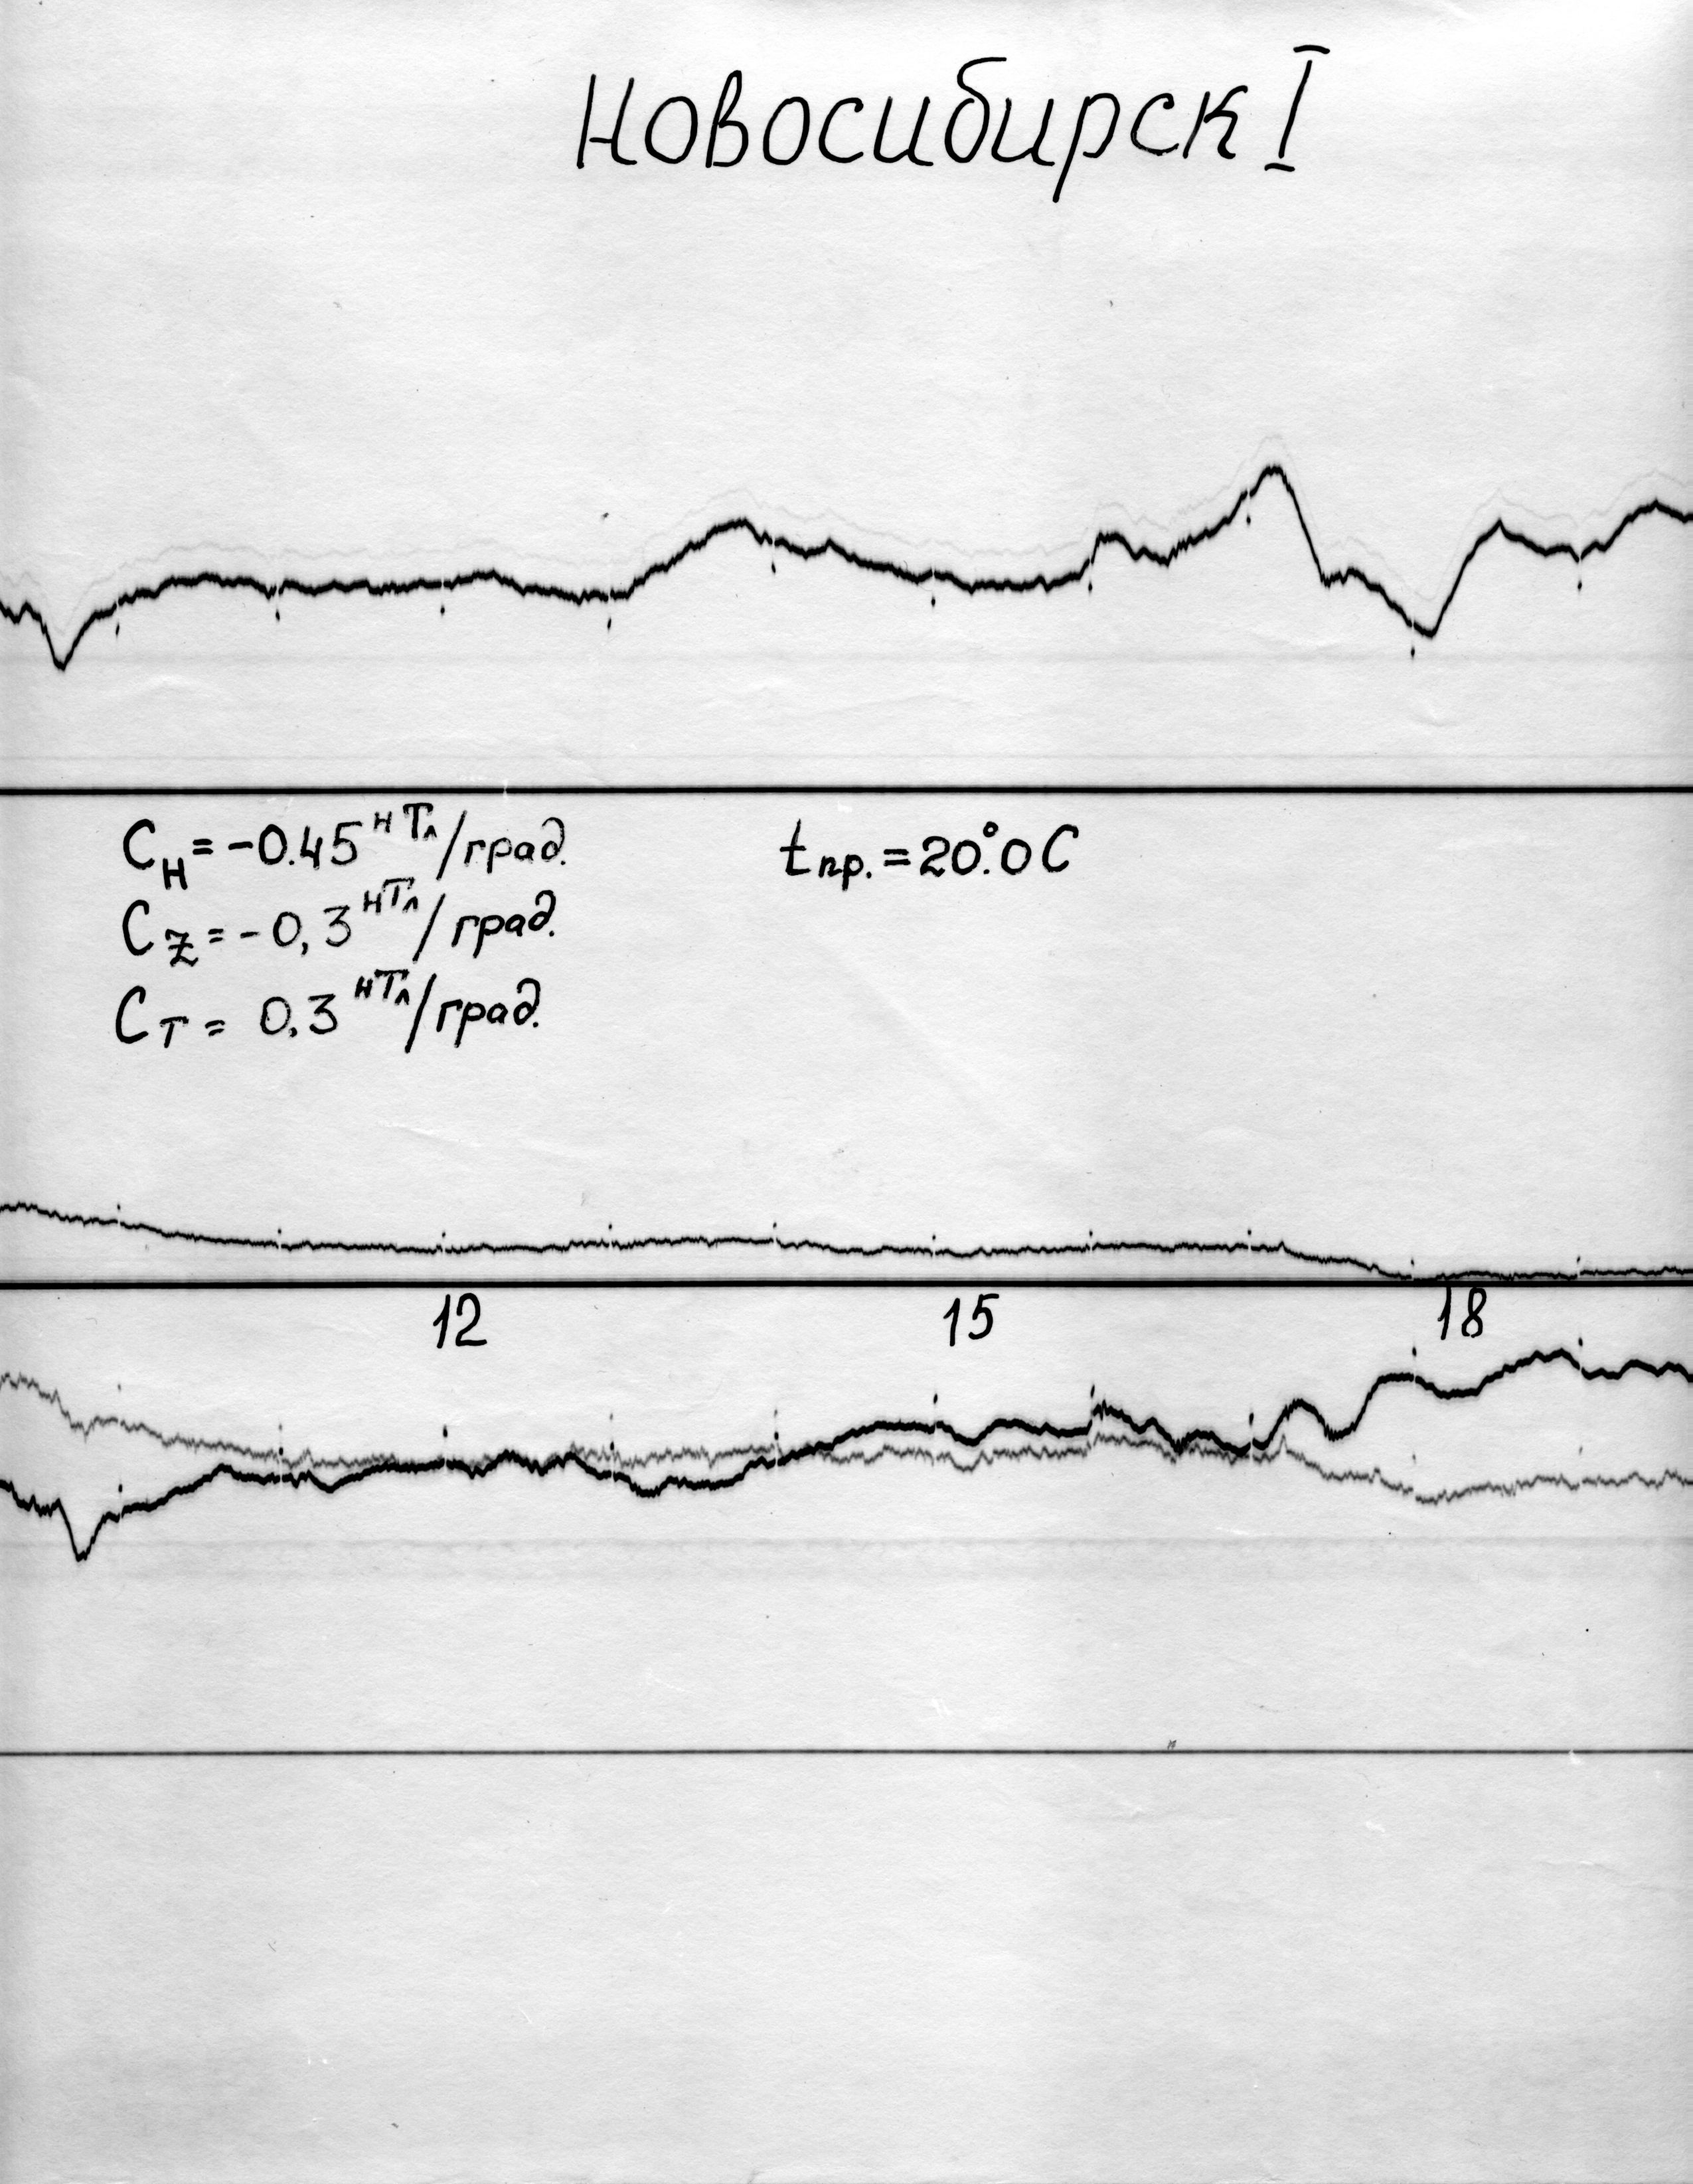 Новосибирск I
C_H = -0.45 нТл/град.
t пр. = 20°.0 C
C_Z = -0,3 нТл/град.
C_T = 0.3 нТл/град.
12 15 18